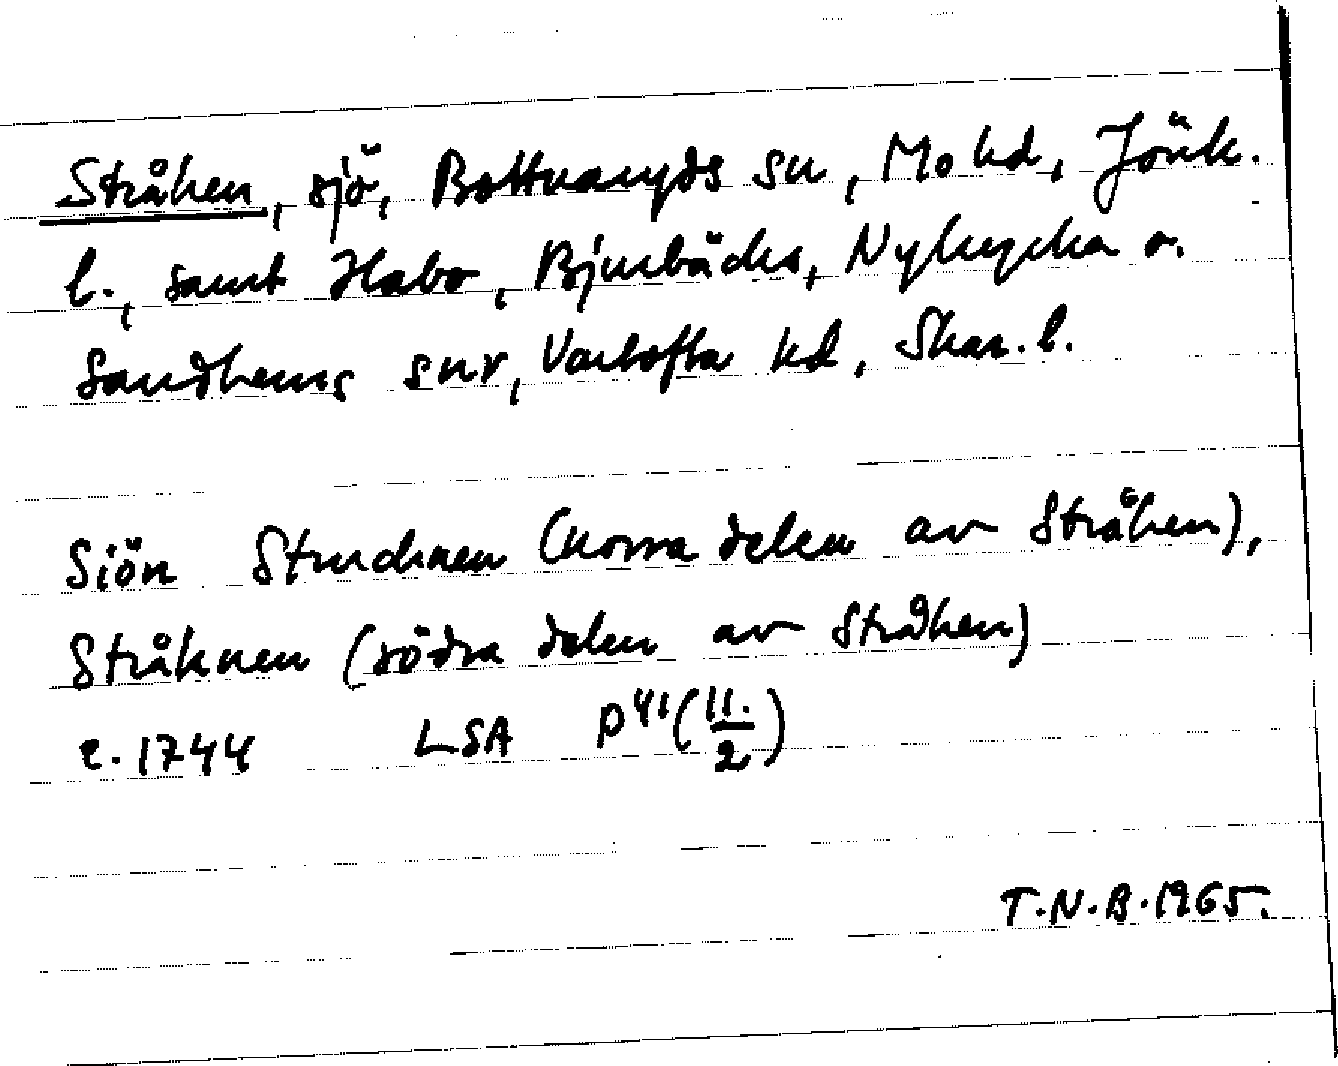 Stråken, sjö, Bottnaryds sn, Mo hd, Jönk.
l., samt Habo, Bjurbäcks, Nykyrka o.
Sandhems snr, Vartofta hd, Skar. l.
Siön Struchnen (norra delen av Stråken),
Stråknen (södra delen av Stråken)
c. 1744 LSA P 41 (11./2)
T.N.B. 1965.